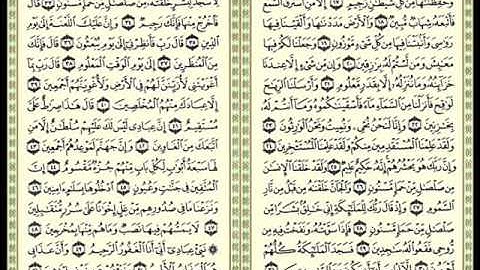 وَحَفِظْنَٰهَا مِن كُلِّ شَيْطَٰنٍ رَّجِيمٍ ١٧ إِلَّا مَنِ ٱسْتَرَقَ ٱلسَّمْعَ
فَأَتْبَعَهُۥ شِهَابٌ مُّبِينٌ ١٨ وَٱلْأَرْضَ مَدَدْنَٰهَا وَأَلْقَيْنَا فِيهَا
رَوَٰسِيَ وَأَنۢبَتْنَا فِيهَا مِن كُلِّ شَيْءٍ مَّوْزُونٍ ١٩ وَجَعَلْنَا لَكُمْ فِيهَا
مَعَٰيِشَ وَمَن لَّسْتُمْ لَهُۥ بِرَٰزِقِينَ ٢٠ وَإِن مِّن شَيْءٍ إِلَّا عِندَنَا
خَزَآئِنُهُۥ وَمَا نُنَزِّلُهُۥٓ إِلَّا بِقَدَرٍ مَّعْلُومٍ ٢١ وَأَرْسَلْنَا ٱلرِّيَٰحَ
لَوَٰقِحَ فَأَنزَلْنَا مِنَ ٱلسَّمَآءِ مَآءً فَأَسْقَيْنَٰكُمُوهُ وَمَآ أَنتُمْ لَهُۥ
بِخَٰزِنِينَ ٢٢ وَإِنَّا لَنَحْنُ نُحْيِۦ وَنُمِيتُ وَنَحْنُ ٱلْوَٰرِثُونَ ٢٣
وَلَقَدْ عَلِمْنَا ٱلْمُسْتَقْدِمِينَ مِنكُمْ وَلَقَدْ عَلِمْنَا ٱلْمُسْتَـْٔخِرِينَ ٢٤
وَإِنَّ رَبَّكَ هُوَ يَحْشُرُهُمْ إِنَّهُۥ حَكِيمٌ عَلِيمٌ ٢٥ وَلَقَدْ خَلَقْنَا ٱلْإِنسَٰنَ
مِن صَلْصَٰلٍ مِّنْ حَمَإٍ مَّسْنُونٍ ٢٦ وَٱلْجَآنَّ خَلَقْنَٰهُ مِن قَبْلُ مِن نَّارِ
ٱلسَّمُومِ ٢٧ وَإِذْ قَالَ رَبُّكَ لِلْمَلَٰٓئِكَةِ إِنِّي خَٰلِقٌۢ بَشَرًا مِّن
صَلْصَٰلٍ مِّنْ حَمَإٍ مَّسْنُونٍ ٢٨ فَإِذَا سَوَّيْتُهُۥ وَنَفَخْتُ فِيهِ مِن
رُّوحِي فَقَعُوا۟ لَهُۥ سَٰجِدِينَ ٢٩ فَسَجَدَ ٱلْمَلَٰٓئِكَةُ كُلُّهُمْ
لِأَسْجُدَ لِبَشَرٍ خَلَقْتَهُۥ مِن صَلْصَٰلٍ مِّنْ حَمَإٍ مَّسْنُونٍ ٣٣ قَالَ
فَٱخْرُجْ مِنْهَا فَإِنَّكَ رَجِيمٌ ٣٤ وَإِنَّ عَلَيْكَ ٱللَّعْنَةَ إِلَىٰ يَوْمِ
ٱلدِّينِ ٣٥ قَالَ رَبِّ فَأَنظِرْنِيٓ إِلَىٰ يَوْمِ يُبْعَثُونَ ٣٦ قَالَ فَإِنَّكَ
مِنَ ٱلْمُنظَرِينَ ٣٧ إِلَىٰ يَوْمِ ٱلْوَقْتِ ٱلْمَعْلُومِ ٣٨ قَالَ رَبِّ بِمَآ
أَغْوَيْتَنِي لَأُزَيِّنَنَّ لَهُمْ فِي ٱلْأَرْضِ وَلَأُغْوِيَنَّهُمْ أَجْمَعِينَ ٣٩
إِلَّا عِبَادَكَ مِنْهُمُ ٱلْمُخْلَصِينَ ٤٠ قَالَ هَٰذَا صِرَٰطٌ عَلَيَّ
مُسْتَقِيمٌ ٤١ إِنَّ عِبَادِي لَيْسَ لَكَ عَلَيْهِمْ سُلْطَٰنٌ إِلَّا مَنِ
ٱتَّبَعَكَ مِنَ ٱلْغَاوِينَ ٤٢ وَإِنَّ جَهَنَّمَ لَمَوْعِدُهُمْ أَجْمَعِينَ ٤٣
لَهَا سَبْعَةُ أَبْوَٰبٍ لِّكُلِّ بَابٍ مِّنْهُمْ جُزْءٌ مَّقْسُومٌ ٤٤ إِنَّ
ٱلْمُتَّقِينَ فِي جَنَّٰتٍ وَعُيُونٍ ٤٥ ٱدْخُلُوهَا بِسَلَٰمٍ ءَامِنِينَ ٤٦
وَنَزَعْنَا مَا فِي صُدُورِهِم مِّنْ غِلٍّ إِخْوَٰنًا عَلَىٰ سُرُرٍ مُّتَقَٰبِلِينَ
٤٧ لَا يَمَسُّهُمْ فِيهَا نَصَبٌ وَمَا هُم مِّنْهَا بِمُخْرَجِينَ ٤٨
نَبِّئْ عِبَادِيٓ أَنِّيٓ أَنَا ٱلْغَفُورُ ٱلرَّحِيمُ ٤٩ وَأَنَّ عَذَابِي